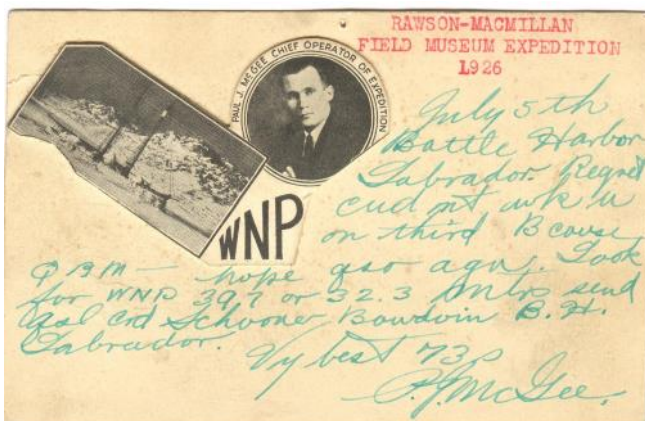 RAWSON-MACMILLAN
FIELD MUSEUM EXPEDITION
1926
PAUL J. McGEE CHIEF OPERATOR OF EXPEDITION
WNP
July 5th
Battle Harbor
Labrador. Regret
cud nt wk u
on third Bcause
QRM — hope qso agn. Look
for WNP 39.7 or 32.3 mtrs send
qsl crd Schooner Bowdoin B.H.
Labrador.
Vy best 73s
P.J. McGee.